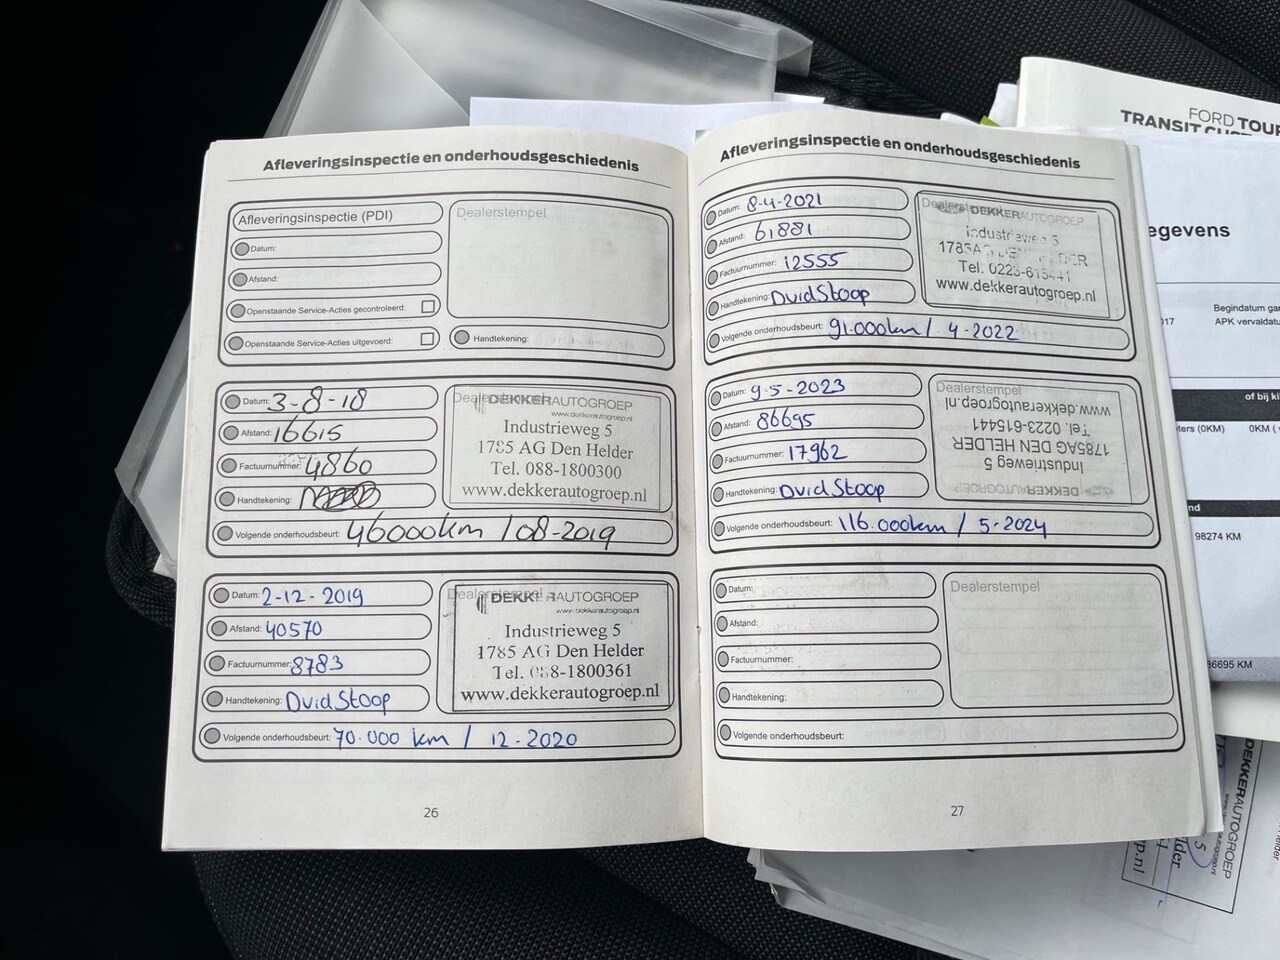 Afleveringsinspectie en onderhoudsgeschiedenis
Afleveringsinspectie (PDI)
Datum:
Afstand:
Openstaande Service-Acties gecontroleerd:
Openstaande Service-Acties uitgevoerd:
Dealerstempel
Handtekening:
Datum: 3-8-18
Afstand: 16615
Factuurnummer: 4860
Handtekening:
Volgende onderhoudsbeurt: 46000km / 08-2019
DEKKERAUTOGROEP
www.dekkerautogroep.nl
Industrieweg 5
1785 AG Den Helder
Tel. 088-1800300
www.dekkerautogroep.nl
Datum: 2-12-2019
Afstand: 40570
Factuurnummer: 8783
Handtekening: DvidStoop
Volgende onderhoudsbeurt: 70.000 km / 12-2020
DEKKERAUTOGROEP
www.dekkerautogroep.nl
Industrieweg 5
1785 AG Den Helder
Tel. 088-1800361
www.dekkerautogroep.nl
26
Afleveringsinspectie en onderhoudsgeschiedenis
Datum: 8-4-2021
Afstand: 61881
Factuurnummer: 12555
Handtekening: DvidStoop
Volgende onderhoudsbeurt: 91.000km / 4-2022
Dealerstempel
DEKKERAUTOGROEP
Industrieweg 5
1785AG DEN HELDER
Tel. 0223-615441
www.dekkerautogroep.nl
Datum: 9-5-2023
Afstand: 86695
Factuurnummer: 17962
Handtekening: DvidStoop
Volgende onderhoudsbeurt: 116.000km / 5-2024
Dealerstempel
DEKKERAUTOGROEP
Industrieweg 5
1785AG DEN HELDER
Tel. 0223-615441
www.dekkerautogroep.nl
Datum:
Afstand:
Factuurnummer:
Handtekening:
Volgende onderhoudsbeurt:
Dealerstempel
27
FORD TOUR
TRANSIT CUST
egevens
Begindatum gar
017 APK vervaldatu
of bij ki
ters (0KM) 0KM (
nd
98274 KM
86695 KM
DEKKERAUTOGROEP